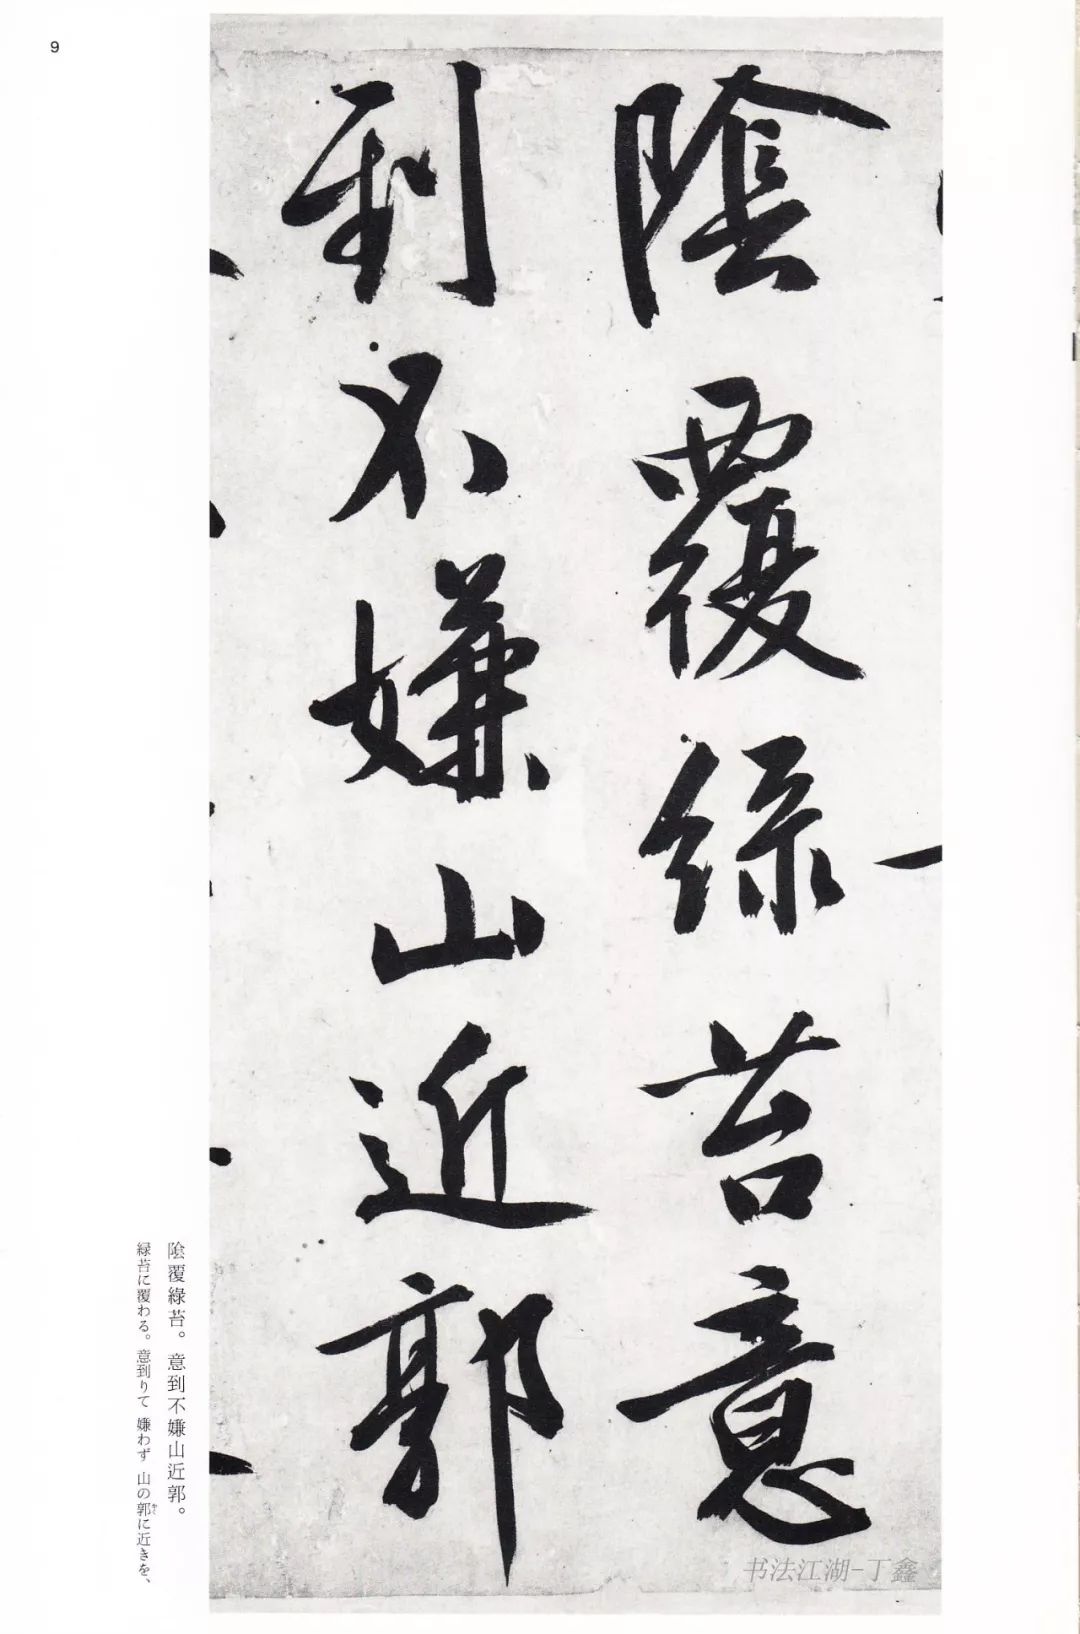 9
陰覆緑苔意
到不嫌山近郭
陰覆緑苔。意到不嫌山近郭。
緑苔に覆わる。意到りて 嫌わず 山の郭に近きを、
かく
书法江湖-丁鑫